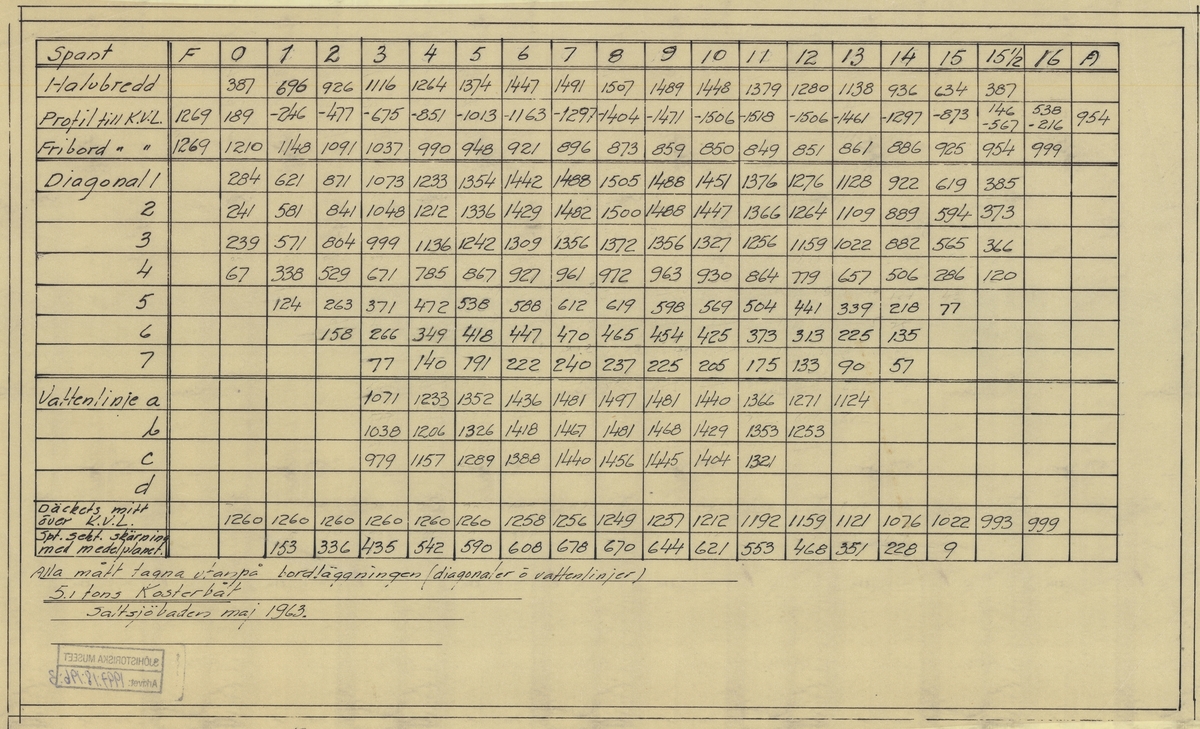 Spant F 0 1 2 3 4 5 6 7 8 9 10 11 12 13 14 15 15½ 16 A
Halvbredd 387 696 926 1116 1264 1374 1447 1491 1507 1489 1448 1379 1280 1138 936 634 387
Profil till K.V.L. 1269 189 -246 -477 -675 -851 -1013 -1163 -1297 -1404 -1471 -1506 -1518 -1506 -1461 -1297 -873 146 -567 538 -216 954
Fribord " " 1269 1210 1148 1091 1037 990 948 921 896 873 859 850 849 851 861 886 925 954 999
Diagonal 1 284 621 871 1073 1233 1354 1442 1488 1505 1488 1451 1376 1276 1128 922 619 385
2 241 581 841 1048 1212 1336 1429 1482 1500 1488 1447 1366 1264 1109 889 594 373
3 239 571 804 999 1136 1242 1309 1356 1372 1356 1327 1256 1159 1022 882 565 366
4 67 338 529 671 785 867 927 961 972 963 930 864 779 657 506 286 120
5 124 263 371 472 538 588 612 619 598 569 504 441 339 218 77
6 158 266 349 418 447 470 465 454 425 373 313 225 135
7 77 140 191 222 240 237 225 205 175 133 90 57
Vattenlinje a 1071 1233 1352 1436 1481 1497 1481 1440 1366 1271 1124
b 1038 1206 1326 1418 1467 1481 1468 1429 1353 1253
c 979 1157 1289 1388 1440 1456 1445 1404 1321
d
Däckets mitt
över K.V.L. 1260 1260 1260 1260 1260 1260 1258 1256 1249 1237 1212 1192 1159 1121 1076 1022 993 999
Spt. sekt. skärning
med medelplanet. 153 336 435 542 590 608 678 670 644 621 553 468 351 228 9
Alla mått tagna utanpå bordläggningen (diagonaler o vattenlinjer)
5.1 tons Kosterbåt
Saltsjöbaden maj 1963.
SJÖHISTORISKA MUSEET
Arkivet: 1997:18:196:3